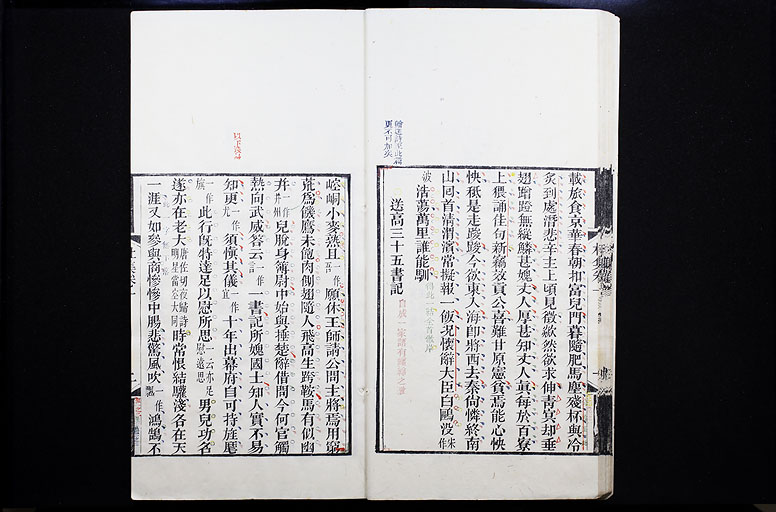 載旅食京華春朝扣富兒門暮隨肥馬塵殘杯與冷
炙到處潛悲辛主上頃見徵歘然欲求伸青冥却垂
翅蹭蹬無縱鱗甚媿丈人厚甚知丈人眞每於百寮
上猥誦佳句新竊效貢公喜難甘原憲貧焉能心怏
怏秪是走踆踆今欲東入海卽將西去秦尚憐終南
山回首清渭濱常擬報一飯况懷辭大臣白鷗沒宋作
波浩蕩萬里誰能馴
送高三十五書記
崆峒小麥熟且一作吾願休王師請公問主將焉用窮
荒爲饑鷹未飽肉側翅隨人飛高生跨鞍馬有似幽
幷一作幷州兒脫身簿尉中始與捶楚辭借問今何官觸
熱向武威答云一作言一書記所媿國士知人實不易
知更一作尤須愼其儀一作宜十年出幕府自可持旌麾
一作旗此行旣特達足以慰所思一云亦足慰遠思男兒功名
遂亦在老大時常恨結驩淺各在天
一涯又如參與商慘慘中腸悲驚風吹一作飄鴻鵠不
以下淺語